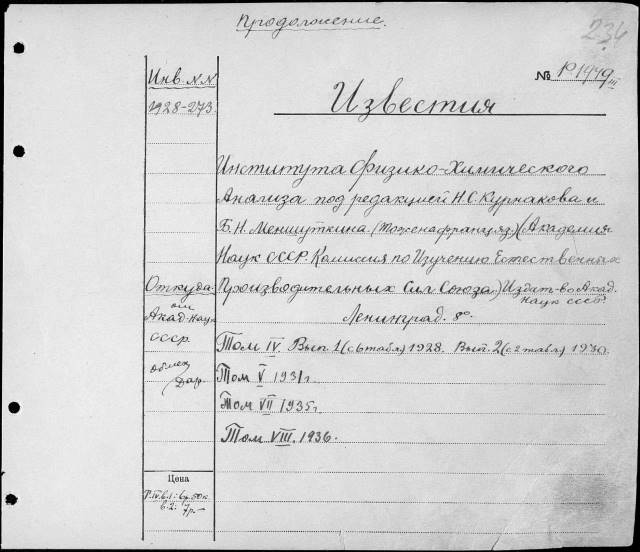 Продолжение.
234
Инв. NN
1928-273.
№ Р1979 III
Известия
Института Физико-Химического
Анализа под редакцией Н.С. Курнакова и
Б.Н. Меншуткина. (Тоже на француз.) (Академия
Наук СССР. Комиссия по Изучению Естественных
Производительных Сил Союза.) Издат-во Акад.
наук СССР.
Ленинград. 8º.
Откуда:
от
Акад. наук
СССР.
обмен
дар.
Том IV Вып. 1 (с 6 табл) 1928. Вып. 2 (с 2 табл) 1930.
Том V 1931 г.
Том VII 1935 г.
Том VIII. 1936.
Цена
Т. IV. в. 1: 6 р. 50 к.
в. 2: 7 р-